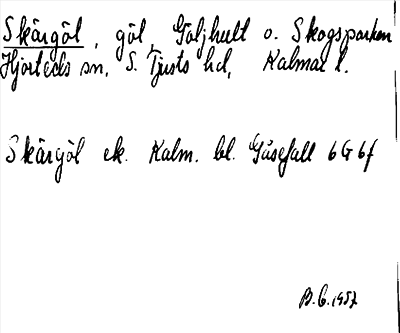 Skärgöl, göl, Göljhult o. Skogsparken
Hjorteds sn, S. Tjusts hd, Kalmar l.
Skärgöl ek. Kalm. bl. Gåsefall 6G 6f
B.G. 1957